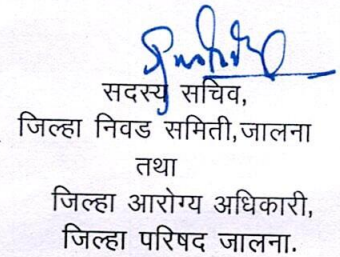 सदस्य सचिव,
जिल्हा निवड समिती,जालना
तथा
जिल्हा आरोग्य अधिकारी,
जिल्हा परिषद जालना.